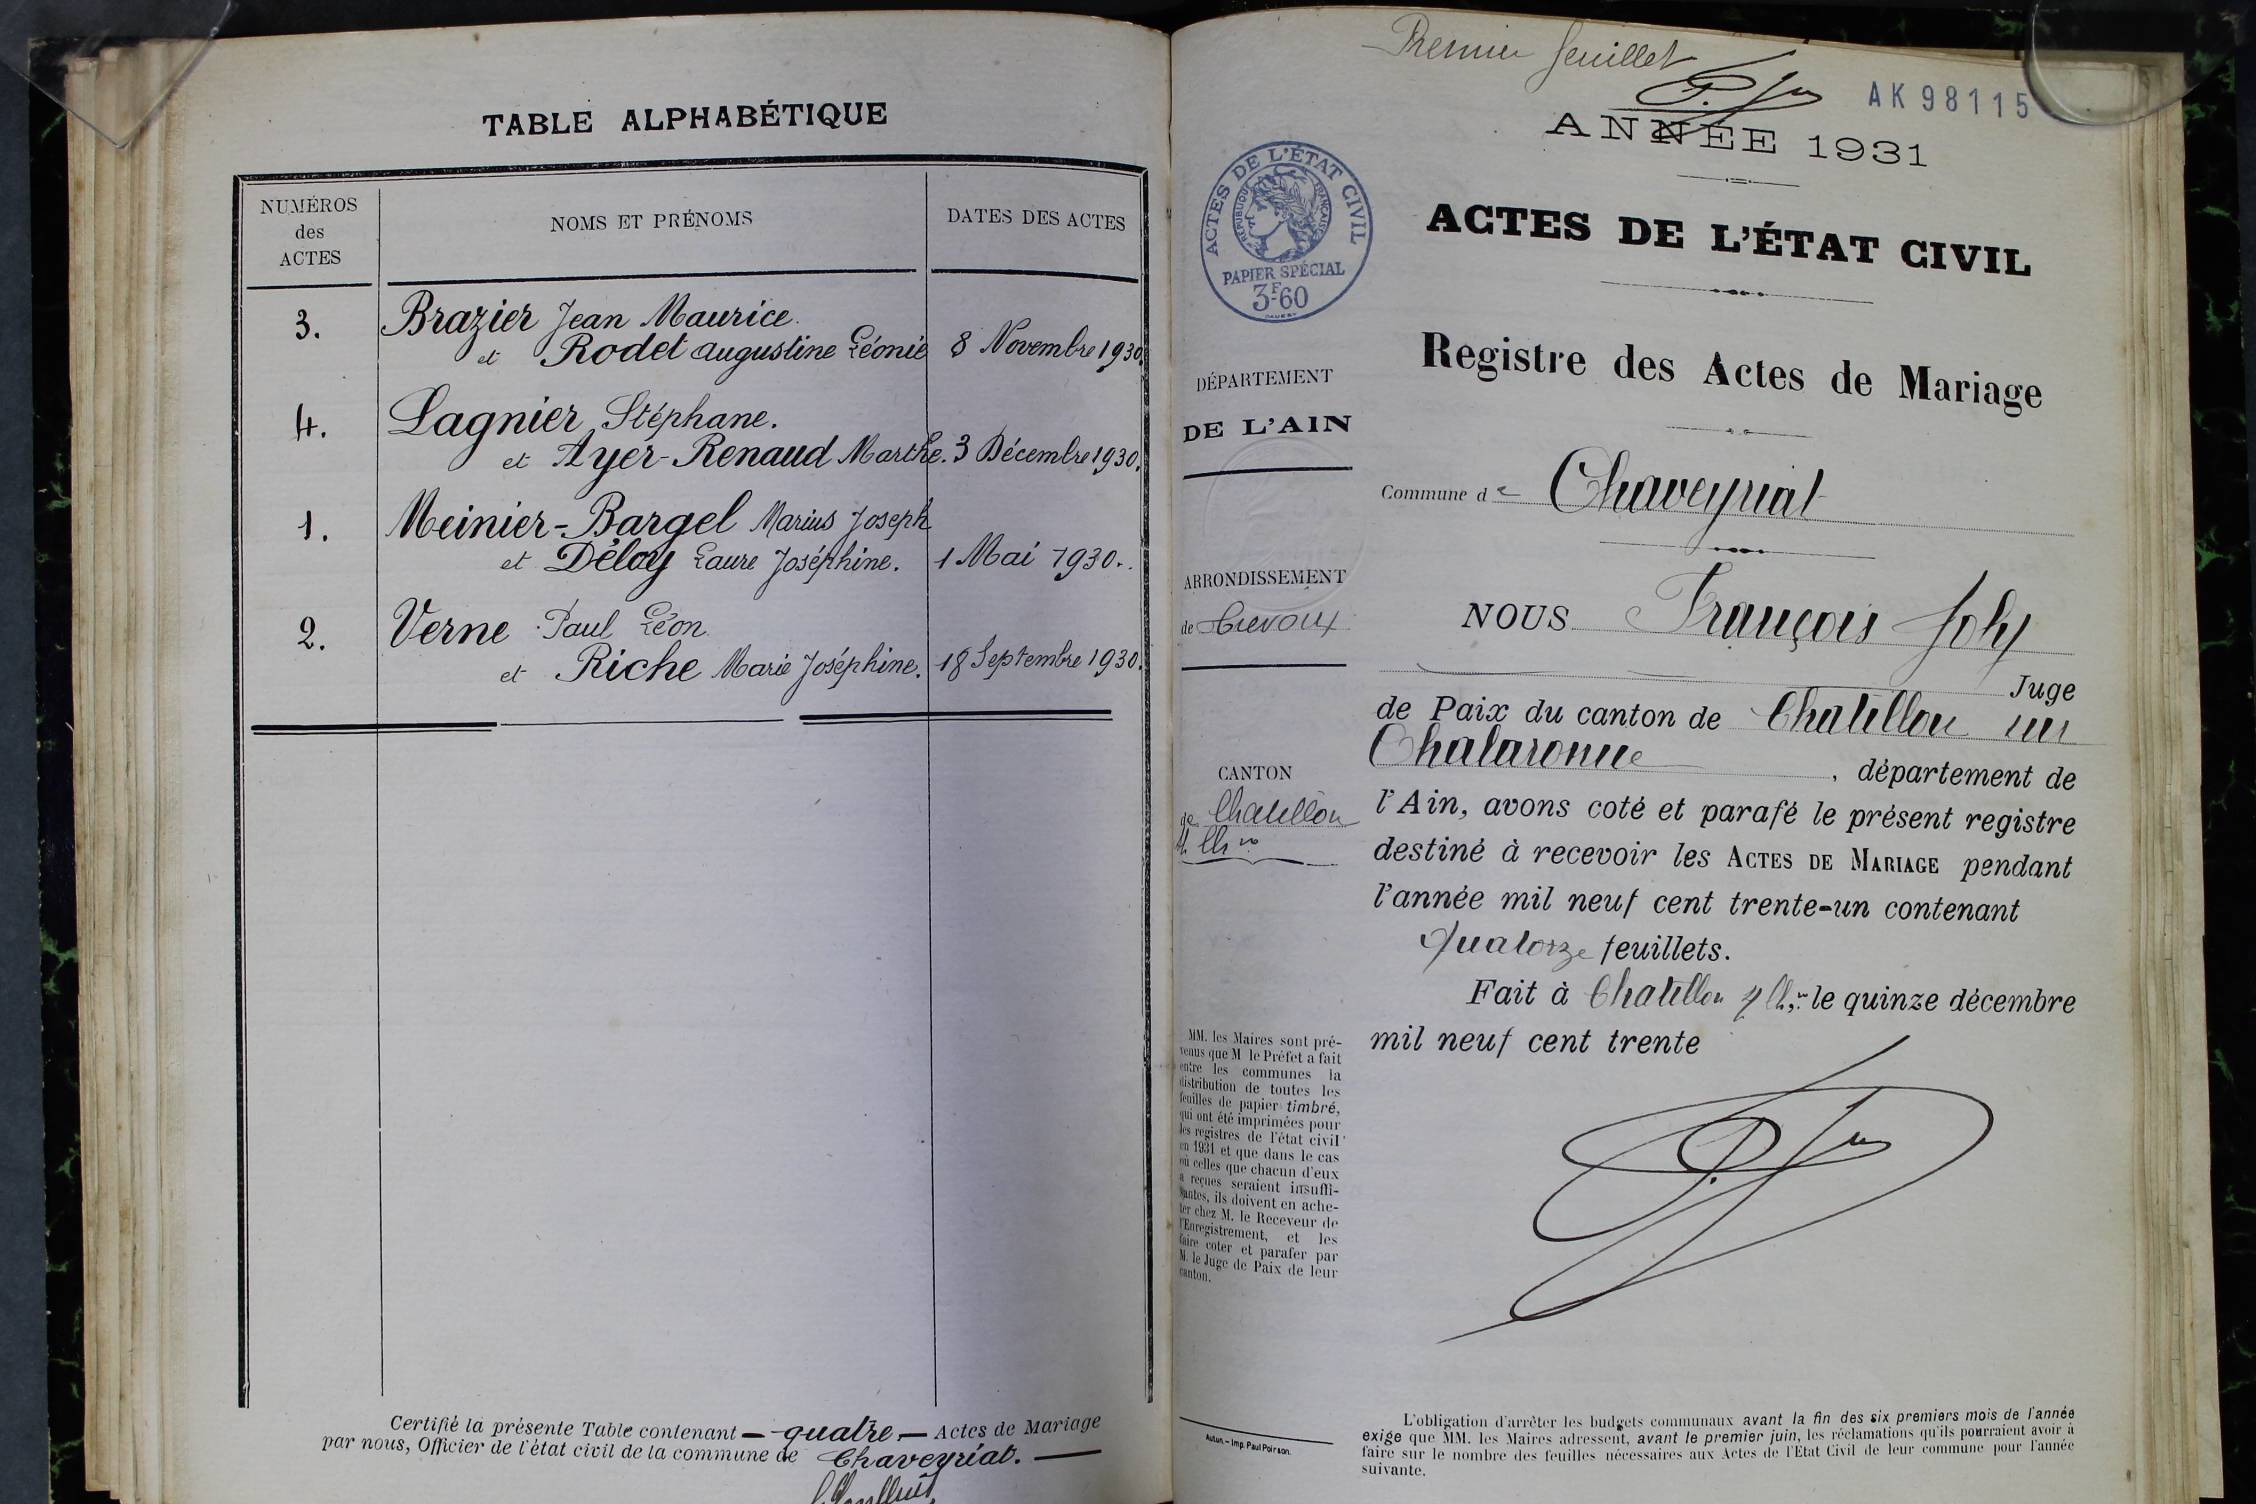 TABLE ALPHABÉTIQUE
NUMÉROS
des
ACTES
NOMS ET PRÉNOMS
DATES DES ACTES
3.
Brazier Jean Maurice.
et Rodet Augustine Léonie
8 Novembre 1930.
4.
Lagnier Stéphane.
et Ayer-Renaud Marthe.
3 Décembre 1930.
1.
Meinier-Bargel Marius Joseph
et Déloy Laure Joséphine.
1 Mai 1930.
2.
Verne Paul Léon
et Riche Marie Joséphine.
18 Septembre 1930.
Certifié la présente Table contenant — quatre — Actes de Mariage
par nous, Officier de l'état civil de la commune de Chaveyriat.
Premier feuillet
AK98115
ANNÉE 1931
ACTES DE L'ÉTAT CIVIL
RÉPUBLIQUE FRANÇAISE
PAPIER SPÉCIAL
3F60
ACTES DE L'ÉTAT CIVIL
Registre des Actes de Mariage
DÉPARTEMENT
DE L'AIN
Commune de Chaveyriat
ARRONDISSEMENT
de Trévoux
NOUS François Joly
Juge
de Paix du canton de Chatillon sur
Chalaronne, département de
CANTON
de Chatillon
l'Ain, avons coté et parafé le présent registre
destiné à recevoir les ACTES DE MARIAGE pendant
l'année mil neuf cent trente-un contenant
quatorze feuillets.
Fait à Chatillon le quinze décembre
mil neuf cent trente
MM. les Maires sont pré-
venus que M le Préfet a fait
entre les communes la
distribution de toutes les
feuilles de papier timbré,
qui ont été imprimées pour
les registres de l'état civil
en 1931 et que dans le cas
où celles que chacun d'eux
a reçues seraient insuffi-
santes, ils doivent en ache-
ter chez M. le Receveur de
l'Enregistrement, et les
faire coter et parafer par
M. le Juge de Paix de leur
canton.
Autun.—Imp. Paul Poirson.
L'obligation d'arrêter les budgets communaux avant la fin des six premiers mois de l'année
exige que MM. les Maires adressent, avant le premier juin, les réclamations qu'ils pourraient avoir à
faire sur le nombre des feuilles nécessaires aux Actes de l'Etat Civil de leur commune pour l'année
suivante.